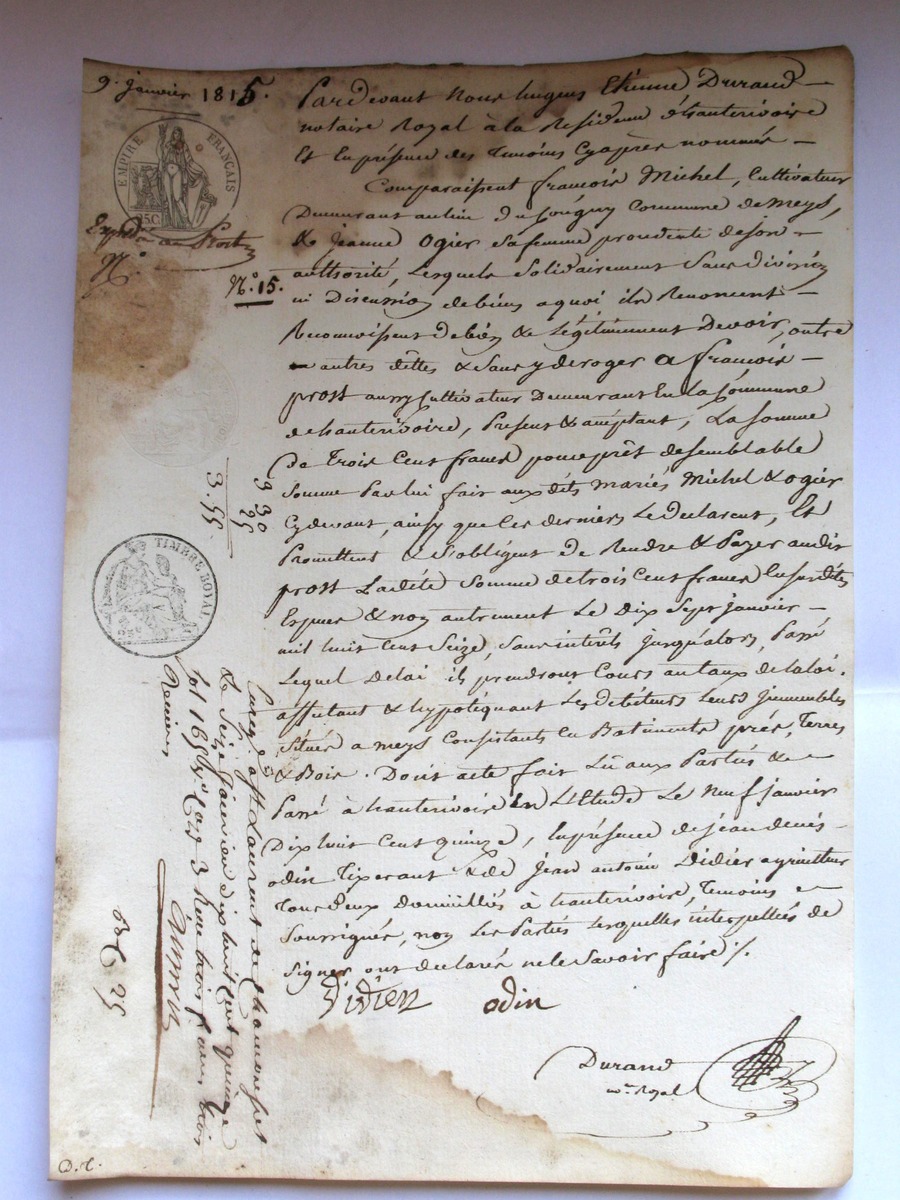 9. janvier 1815.
EMPIRE FRANÇAIS
25C.
Expédié au Prost
N.°
N.° 15.
Pardevant Nous Etienne Durand
notaire Royal à la Residence d'hauterivoire
Et En présence des Temoins Cyapres nommés
Comparaissent françois Michel, Cultivateur
Demeurant au lieu du Commune de meys,
& jeanne Ogier Sa femme procedente de son
authorité, Lesquels Solidairement Sans division
ni Discussion de biens a quoi ils Renoncent
Reconnoissent de bien & Légitimement Devoir, outre
autres dêttes & Sans y deroger a françois
prost aussy Cultivateur Demeurant En La Commune
de hauterivoire, Présent & acceptant, La Somme
de Trois Cent francs pour prêt de semblable
Somme Par lui fait aux dits mariés Michel & ogier
Cy devant, ainsy que Ces derniers Le declarent, Et
Promettent & S'obligent de Rendre & Payer audit
prost Ladite Somme de trois Cent francs En susdites
Espèces & non autrement Le Dix Sept janvier
mil huit Cent Seize, Sans intérêts jusqu'alors, Passé
Lequel Delai ils prendront Cours au taux de la loi.
affectant & hypotéquant Les débiteurs Leurs jmmeubles
Situés a meys Consistants En Batiments, prés, Terres
& Bois. Dont acte fait Lû aux Parties &
Passé à hauterivoire En L'Etude Le Neuf janvier
Dix huit Cent quinze, En présence de jean denis
odin Tixerant & de jean antoine Didier agriculteur
Tous deux domicilliés à hauterivoire, Temoins
Soussignés, non Les Parties Lesquelles interpellées de
Signer ont declarés ne le Savoir faire ./.
Didier odin
Durand
n.re Royal
3 30
25
3.55
TIMBRE ROYAL
Enreg. à St Laurent de Chamousset
le Seize janvier dix huit Cent quinze
fol 165 Case 3 Reçu trois francs trois
25
D.C.